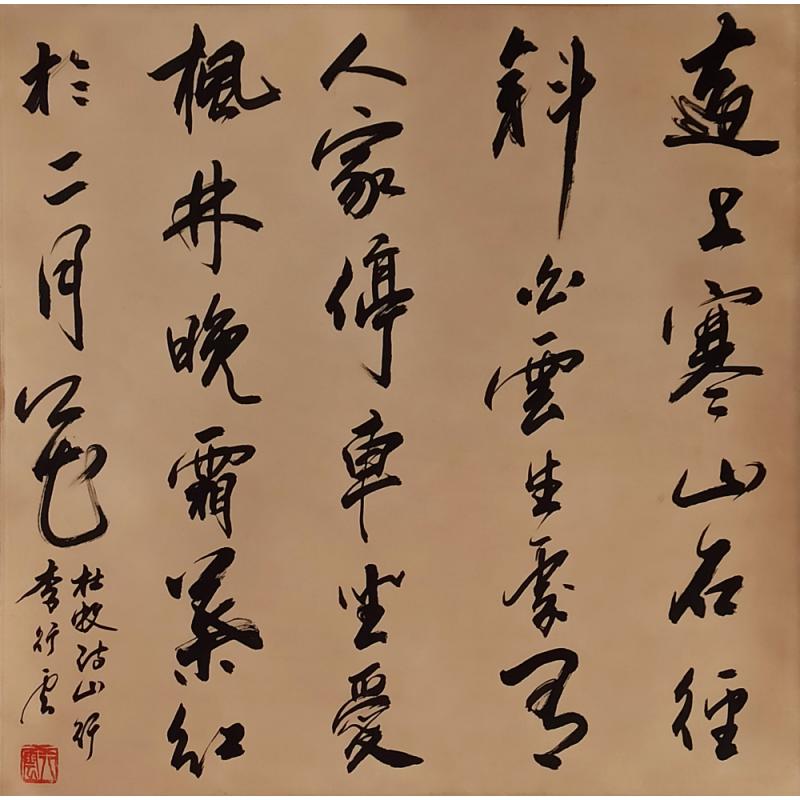 遠上寒山石徑
斜白雲生處有
人家停車坐愛
楓林晚霜葉紅
於二月花
杜牧詩山行
李行雲
行雲